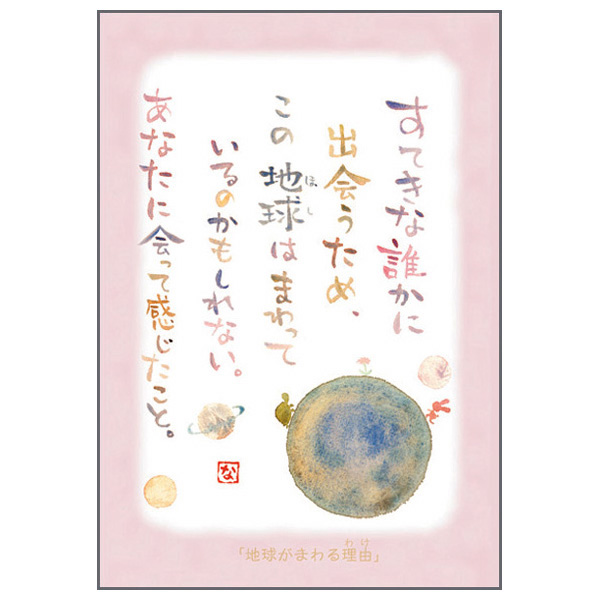 すてきな誰かに
出会うため、
この地球はまわって
ほし
いるのかもしれない。
あなたに会って感じたこと。
な
わけ
「地球がまわる理由」